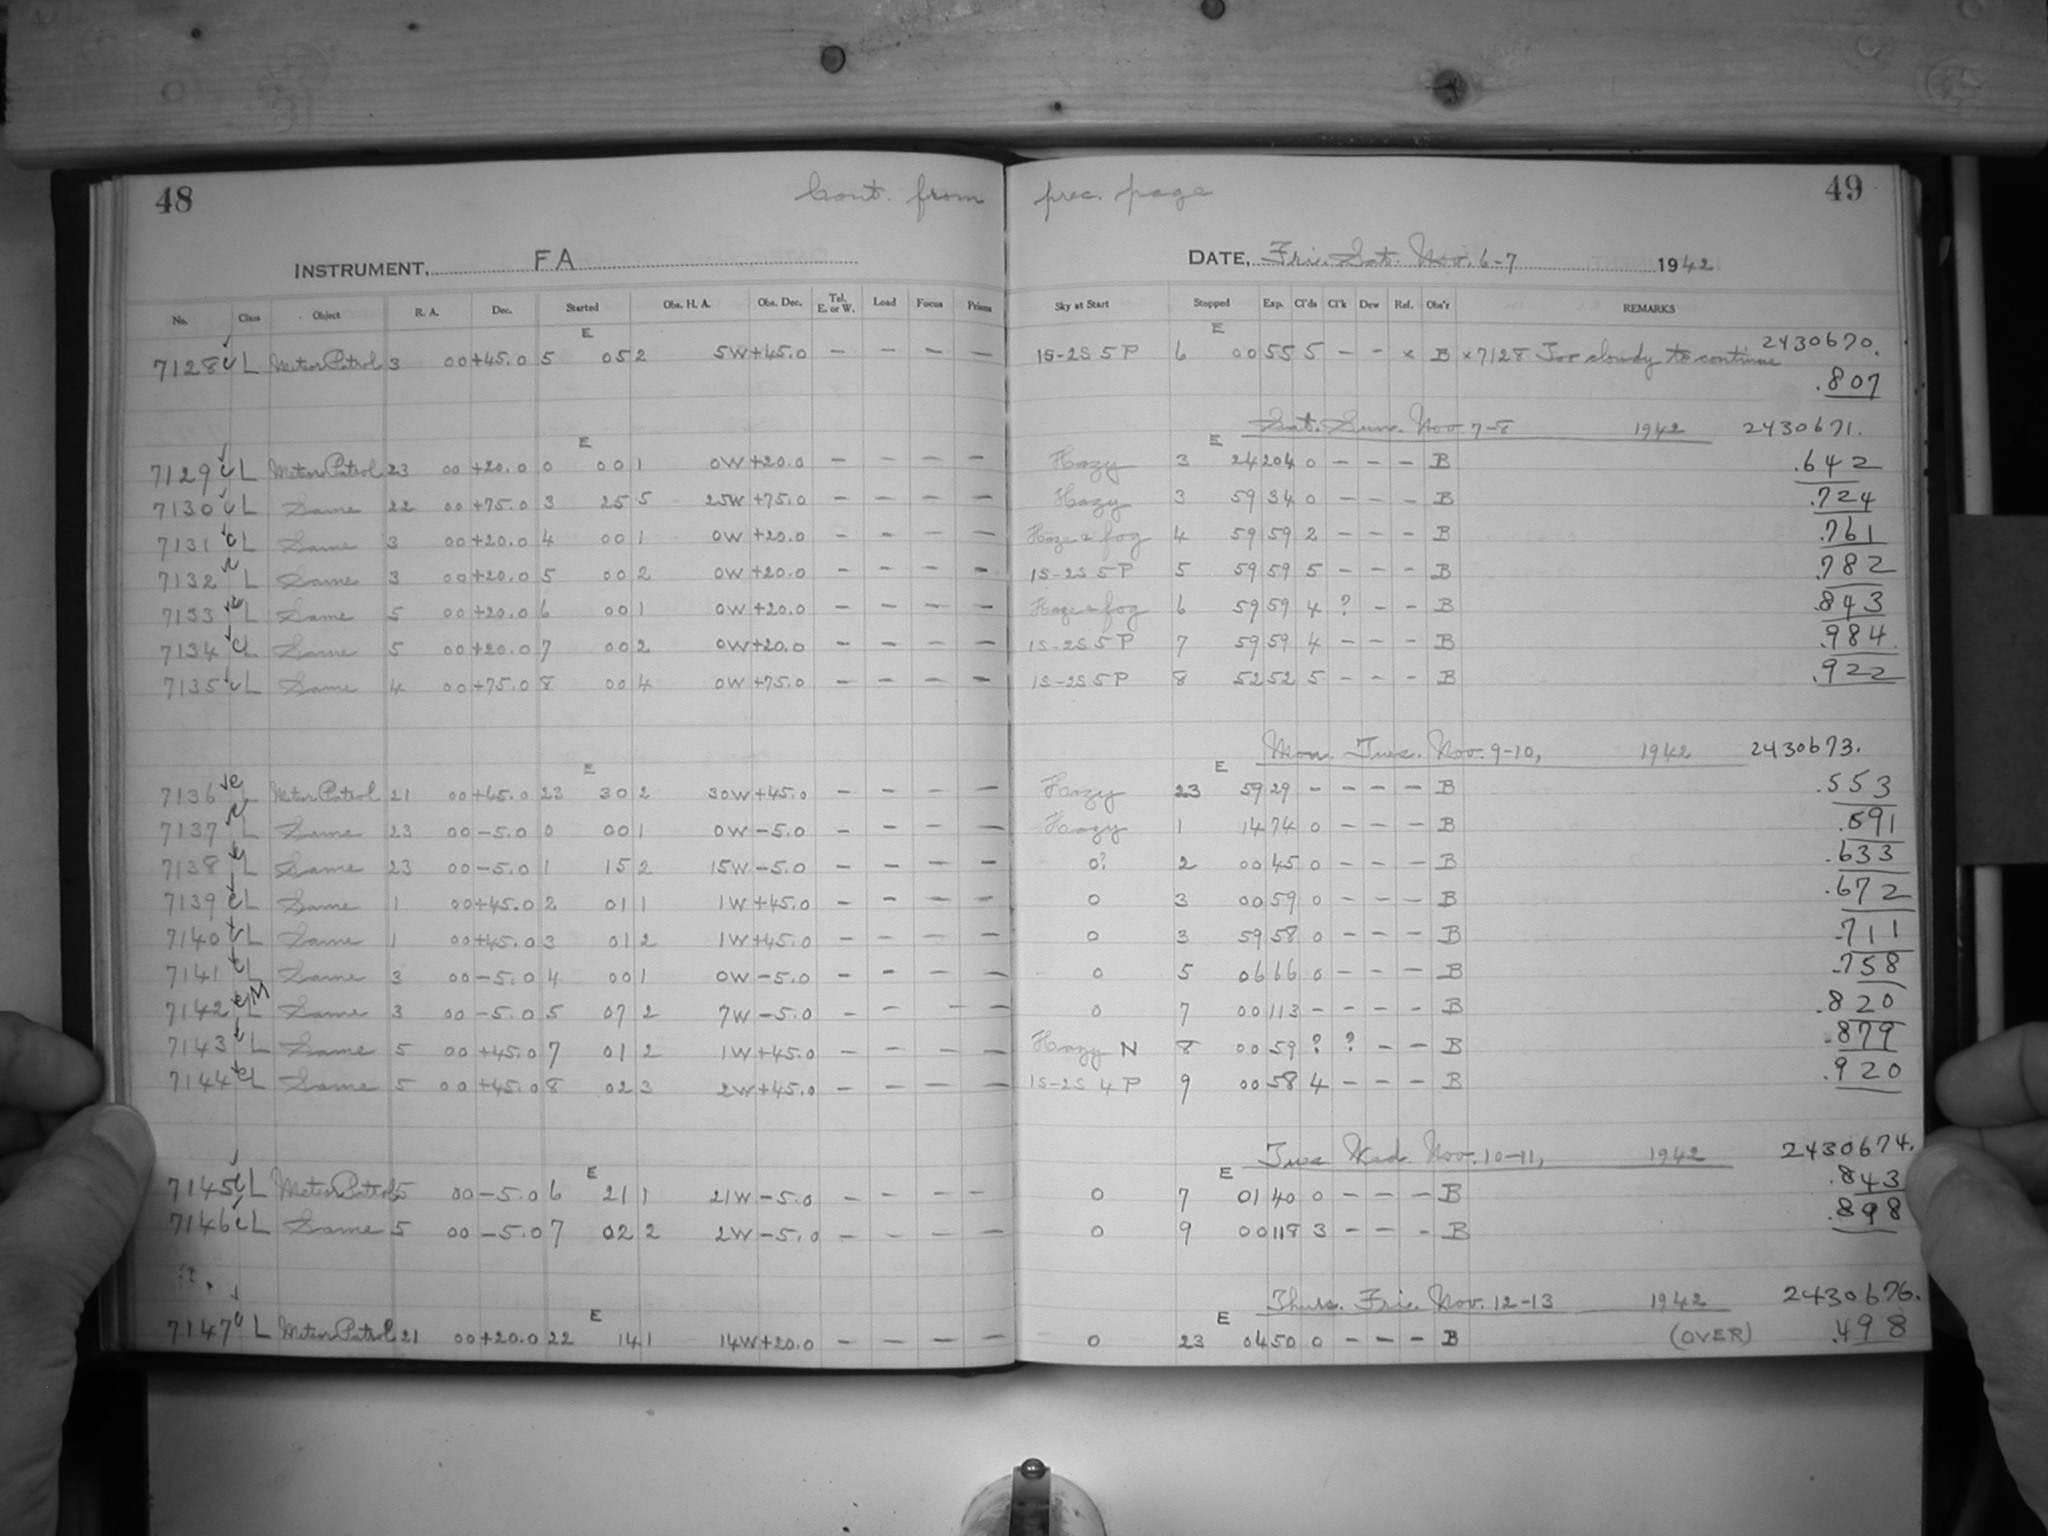 48 Cont. from prec. page 49
INSTRUMENT, FA DATE, Fri. Sat. Nov. 6-7 1942
No. Class Object R. A. Dec. Started Obs. H. A. Obs. Dec. Tel. E. or W. Load Focus Prisms Sky at Start Stopped Exp. Cl'ds Cl'k Dew Ref. Obs'r REMARKS
E E 2430670.
7128 L Meteor Patrol 3 00 +45.0 5 05 2 5W +45.0 — — — — 1S-2S 5 P 6 00 55 5 — — × B × 7128 Too cloudy to continue
.807
E E Sat. Sun. Nov 7-8 1942 2430671.
7129 L Meteor Patrol 23 00 +20.0 0 00 1 0W +20.0 — — — — Hazy 3 24 204 0 — — — B .642
7130 L Same 22 00 +75.0 3 25 5 25W +75.0 — — — — Hazy 3 59 34 0 — — — B .724
7131 L Same 3 00 +20.0 4 00 1 0W +20.0 — — — — Haze & fog 4 59 59 2 — — — B .761
7132 L Same 3 00 +20.0 5 00 2 0W +20.0 — — — — 1S-2S 5 P 5 59 59 5 — — — B .782
7133 L Same 5 00 +20.0 6 00 1 0W +20.0 — — — — Haze & fog 6 59 59 4 ? — — B .843
7134 L Same 5 00 +20.0 7 00 2 0W +20.0 — — — — 1S-2S 5 P 7 59 59 4 — — — B .984
7135 L Same 4 00 +75.0 8 00 4 0W +75.0 — — — — 1S-2S 5 P 8 52 52 5 — — — B .922
E E Mon. Tues. Nov. 9-10, 1942 2430673.
7136 L Meteor Patrol 21 00 +45.0 23 30 2 30W +45.0 — — — — Hazy 23 59 29 — — — — B .553
7137 L Same 23 00 -5.0 0 00 1 0W -5.0 — — — — Hazy 1 14 74 0 — — — B .591
7138 L Same 23 00 -5.0 1 15 2 15W -5.0 — — — — 0? 2 00 45 0 — — — B .633
7139 L Same 1 00 +45.0 2 01 1 1W +45.0 — — — — 0 3 00 59 0 — — — B .672
7140 L Same 1 00 +45.0 3 01 2 1W +45.0 — — — — 0 3 59 58 0 — — — B .711
7141 L Same 3 00 -5.0 4 00 1 0W -5.0 — — — — 0 5 06 66 0 — — — B .758
7142 L M Same 3 00 -5.0 5 07 2 7W -5.0 — — — — 0 7 00 113 — — — — B .820
7143 L Same 5 00 +45.0 7 01 2 1W +45.0 — — — — Hazy N 8 00 59 ? ? — — B .879
7144 L Same 5 00 +45.0 8 02 3 2W +45.0 — — — — 1S-2S 4 P 9 00 58 4 — — — B .920
E E Tues Wed. Nov. 10-11, 1942 2430674.
7145 L Meteor Patrol 5 00 -5.0 6 21 1 21W -5.0 — — — — 0 7 01 40 0 — — — B .843
7146 L Same 5 00 -5.0 7 02 2 2W -5.0 — — — — 0 9 00 118 3 — — — B .898
E E Thurs. Fri. Nov. 12-13 1942 2430676.
7147 L Meteor Patrol 21 00 +20.0 22 14 1 14W +20.0 — — — — 0 23 04 50 0 — — — B (OVER) .498